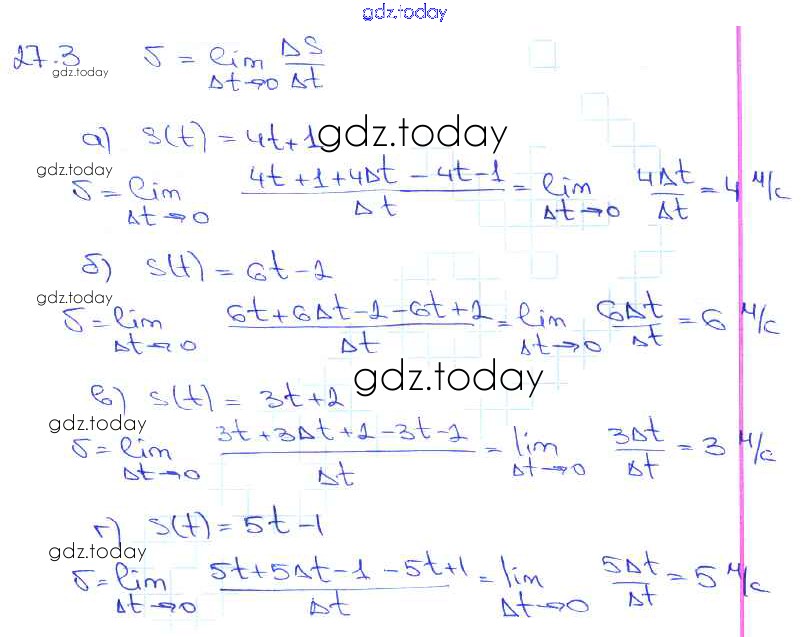 gdz.today
27.3 υ = lim Δt→0 ΔS/Δt
gdz.today
а) s(t) = 4t+1
gdz.today
gdz.today
υ = lim Δt→0 (4t+1+4Δt-4t-1)/Δt = lim Δt→0 4Δt/Δt = 4 м/с
б) s(t) = 6t-2
gdz.today
υ = lim Δt→0 (6t+6Δt-2-6t+2)/Δt = lim Δt→0 6Δt/Δt = 6 м/с
gdz.today
в) s(t) = 3t+2
gdz.today
υ = lim Δt→0 (3t+3Δt+2-3t-2)/Δt = lim Δt→0 3Δt/Δt = 3 м/с
г) s(t) = 5t-1
gdz.today
υ = lim Δt→0 (5t+5Δt-1-5t+1)/Δt = lim Δt→0 5Δt/Δt = 5 м/с